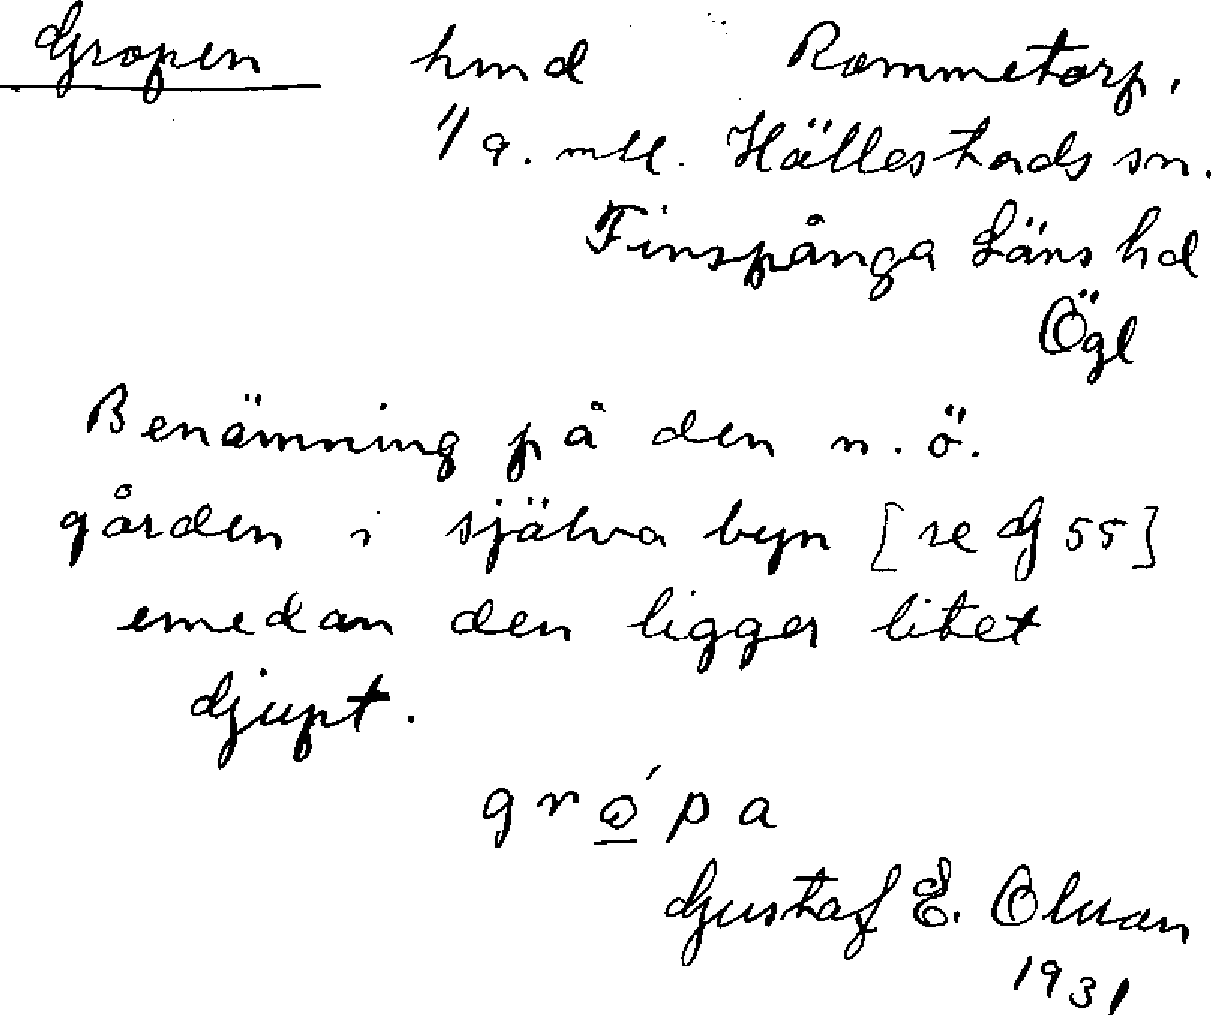 Gropen hmd Rommetorp,
1/9. mtl. Hällestads sn.
Finspånga Läns hd
Ögl
Benämning på den n.ö.
gården i själva byn [se G 55]
emedan den ligger litet
djupt.
grǫ́pa
Gustaf E. Olsson
1931